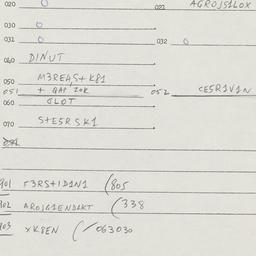 020 0 021 AGROJS1LOX
030 0
031 0 032 0
040 DINUT
050 M3REA5+K81
051 + GAP 20K 052 CE5R1V1N
060 CLOT
070 S+E5RSK1
901 F3RS+1D1N1 (805
902 AROJG1ENDAKT (338
903 XK8EN (/063030